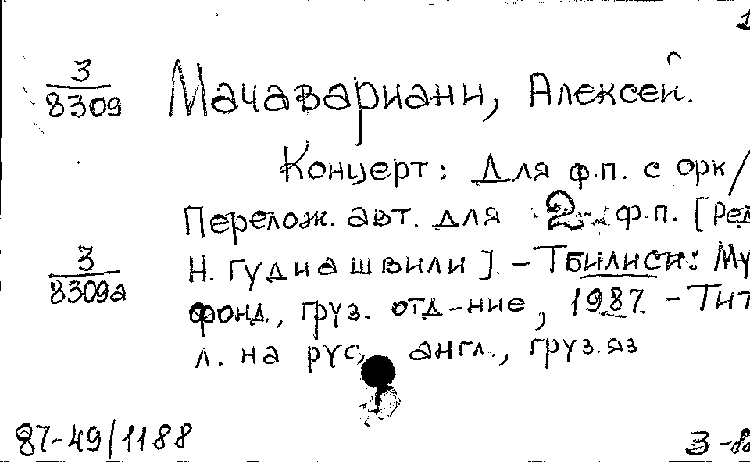 1
З
8309
Мачавариани, Алексей.
Концерт: Для ф.п. с орк/
Перелож. авт. для 2-х ф.п. [Ред
З
8309а
Н. Гудиашвили]. - Тбилиси: Му
фонд., груз. отд-ние, 1987. - Тит
л. на рус., англ., груз. яз
87-49/1188
З-8